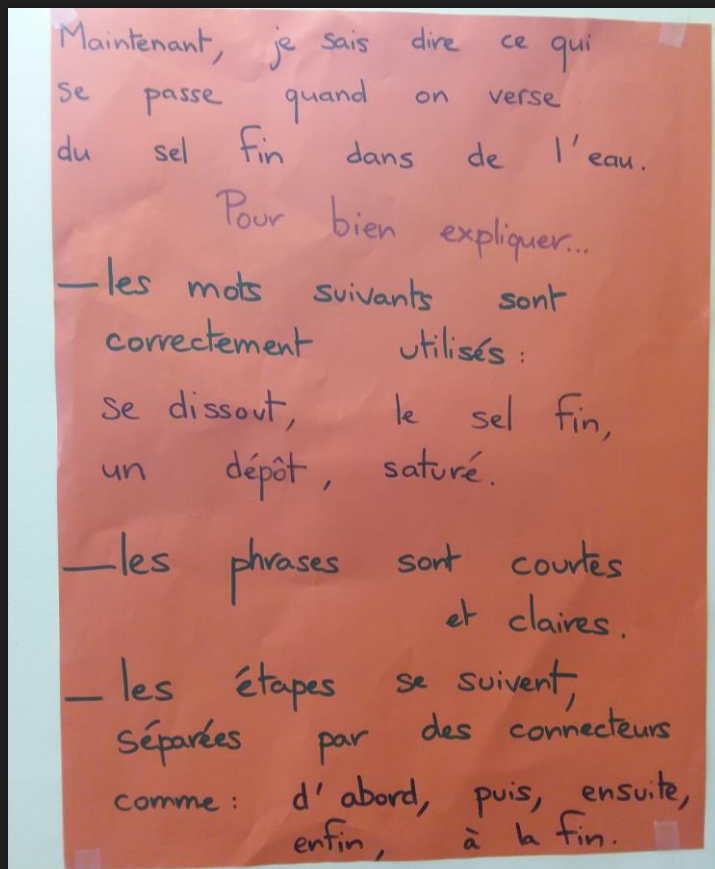 Maintenant, je sais dire ce qui
se passe quand on verse
du sel fin dans de l'eau.
Pour bien expliquer...
— les mots suivants sont
correctement utilisés :
se dissout, le sel fin,
un dépôt, saturé.
— les phrases sont courtes
et claires.
— les étapes se suivent,
séparées par des connecteurs
comme : d'abord, puis, ensuite,
enfin, à la fin.